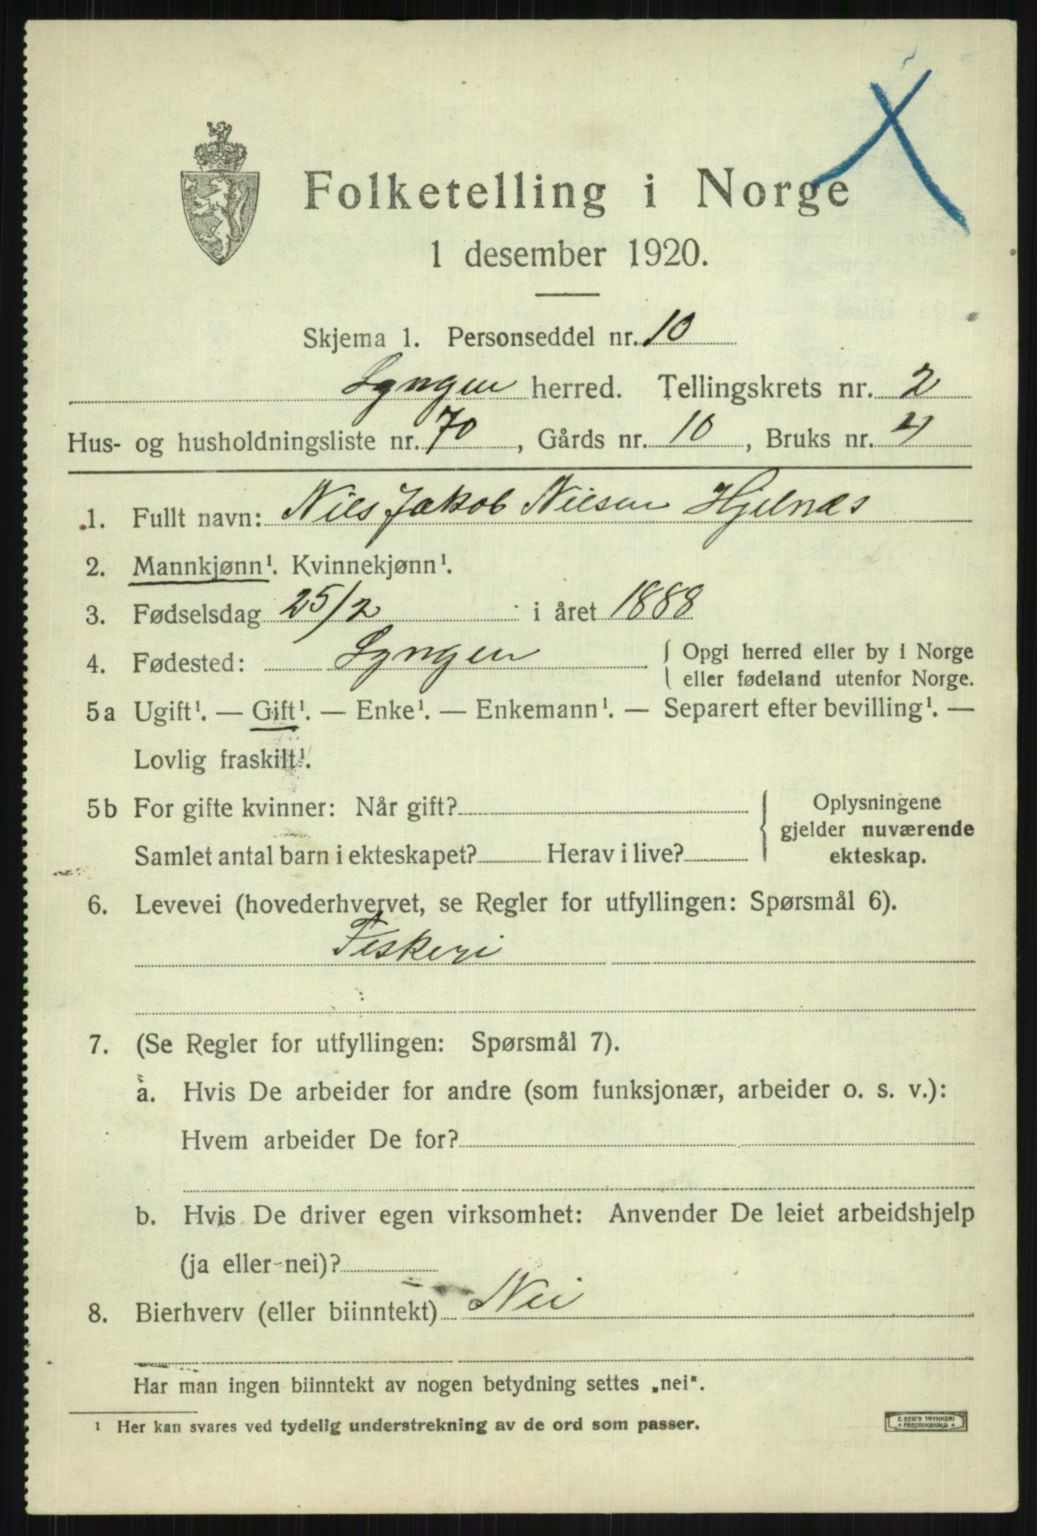 Folketelling i Norge
1 desember 1920.
Skjema 1. Personseddel nr. 10
Lyngen herred. Tellingskrets nr. 2
Hus- og husholdningsliste nr. 70, Gårds nr. 10, Bruks nr. 4
1. Fullt navn: Nils Jakob Nilsen Hjelnæs
2. Mannkjønn¹. Kvinnekjønn¹.
3. Fødselsdag 25/2 i året 1888
4. Fødested: Lyngen { Opgi herred eller by i Norge
eller fødeland utenfor Norge.
5a Ugift¹. — Gift¹. — Enke¹. — Enkemann¹. — Separert efter bevilling¹. —
Lovlig fraskilt¹.
5b For gifte kvinner: Når gift?
Samlet antal barn i ekteskapet? Herav i live?
{ Oplysningene
gjelder nuværende
ekteskap.
6. Levevei (hovederhvervet, se Regler for utfyllingen: Spørsmål 6).
Fiskeri
7. (Se Regler for utfyllingen: Spørsmål 7).
a. Hvis De arbeider for andre (som funksjonær, arbeider o. s. v.):
Hvem arbeider De for?
b. Hvis De driver egen virksomhet: Anvender De leiet arbeidshjelp
(ja eller nei)?
8. Bierhverv (eller biinntekt) Nei
Har man ingen biinntekt av nogen betydning settes „nei“.
¹ Her kan svares ved tydelig understrekning av de ord som passer.